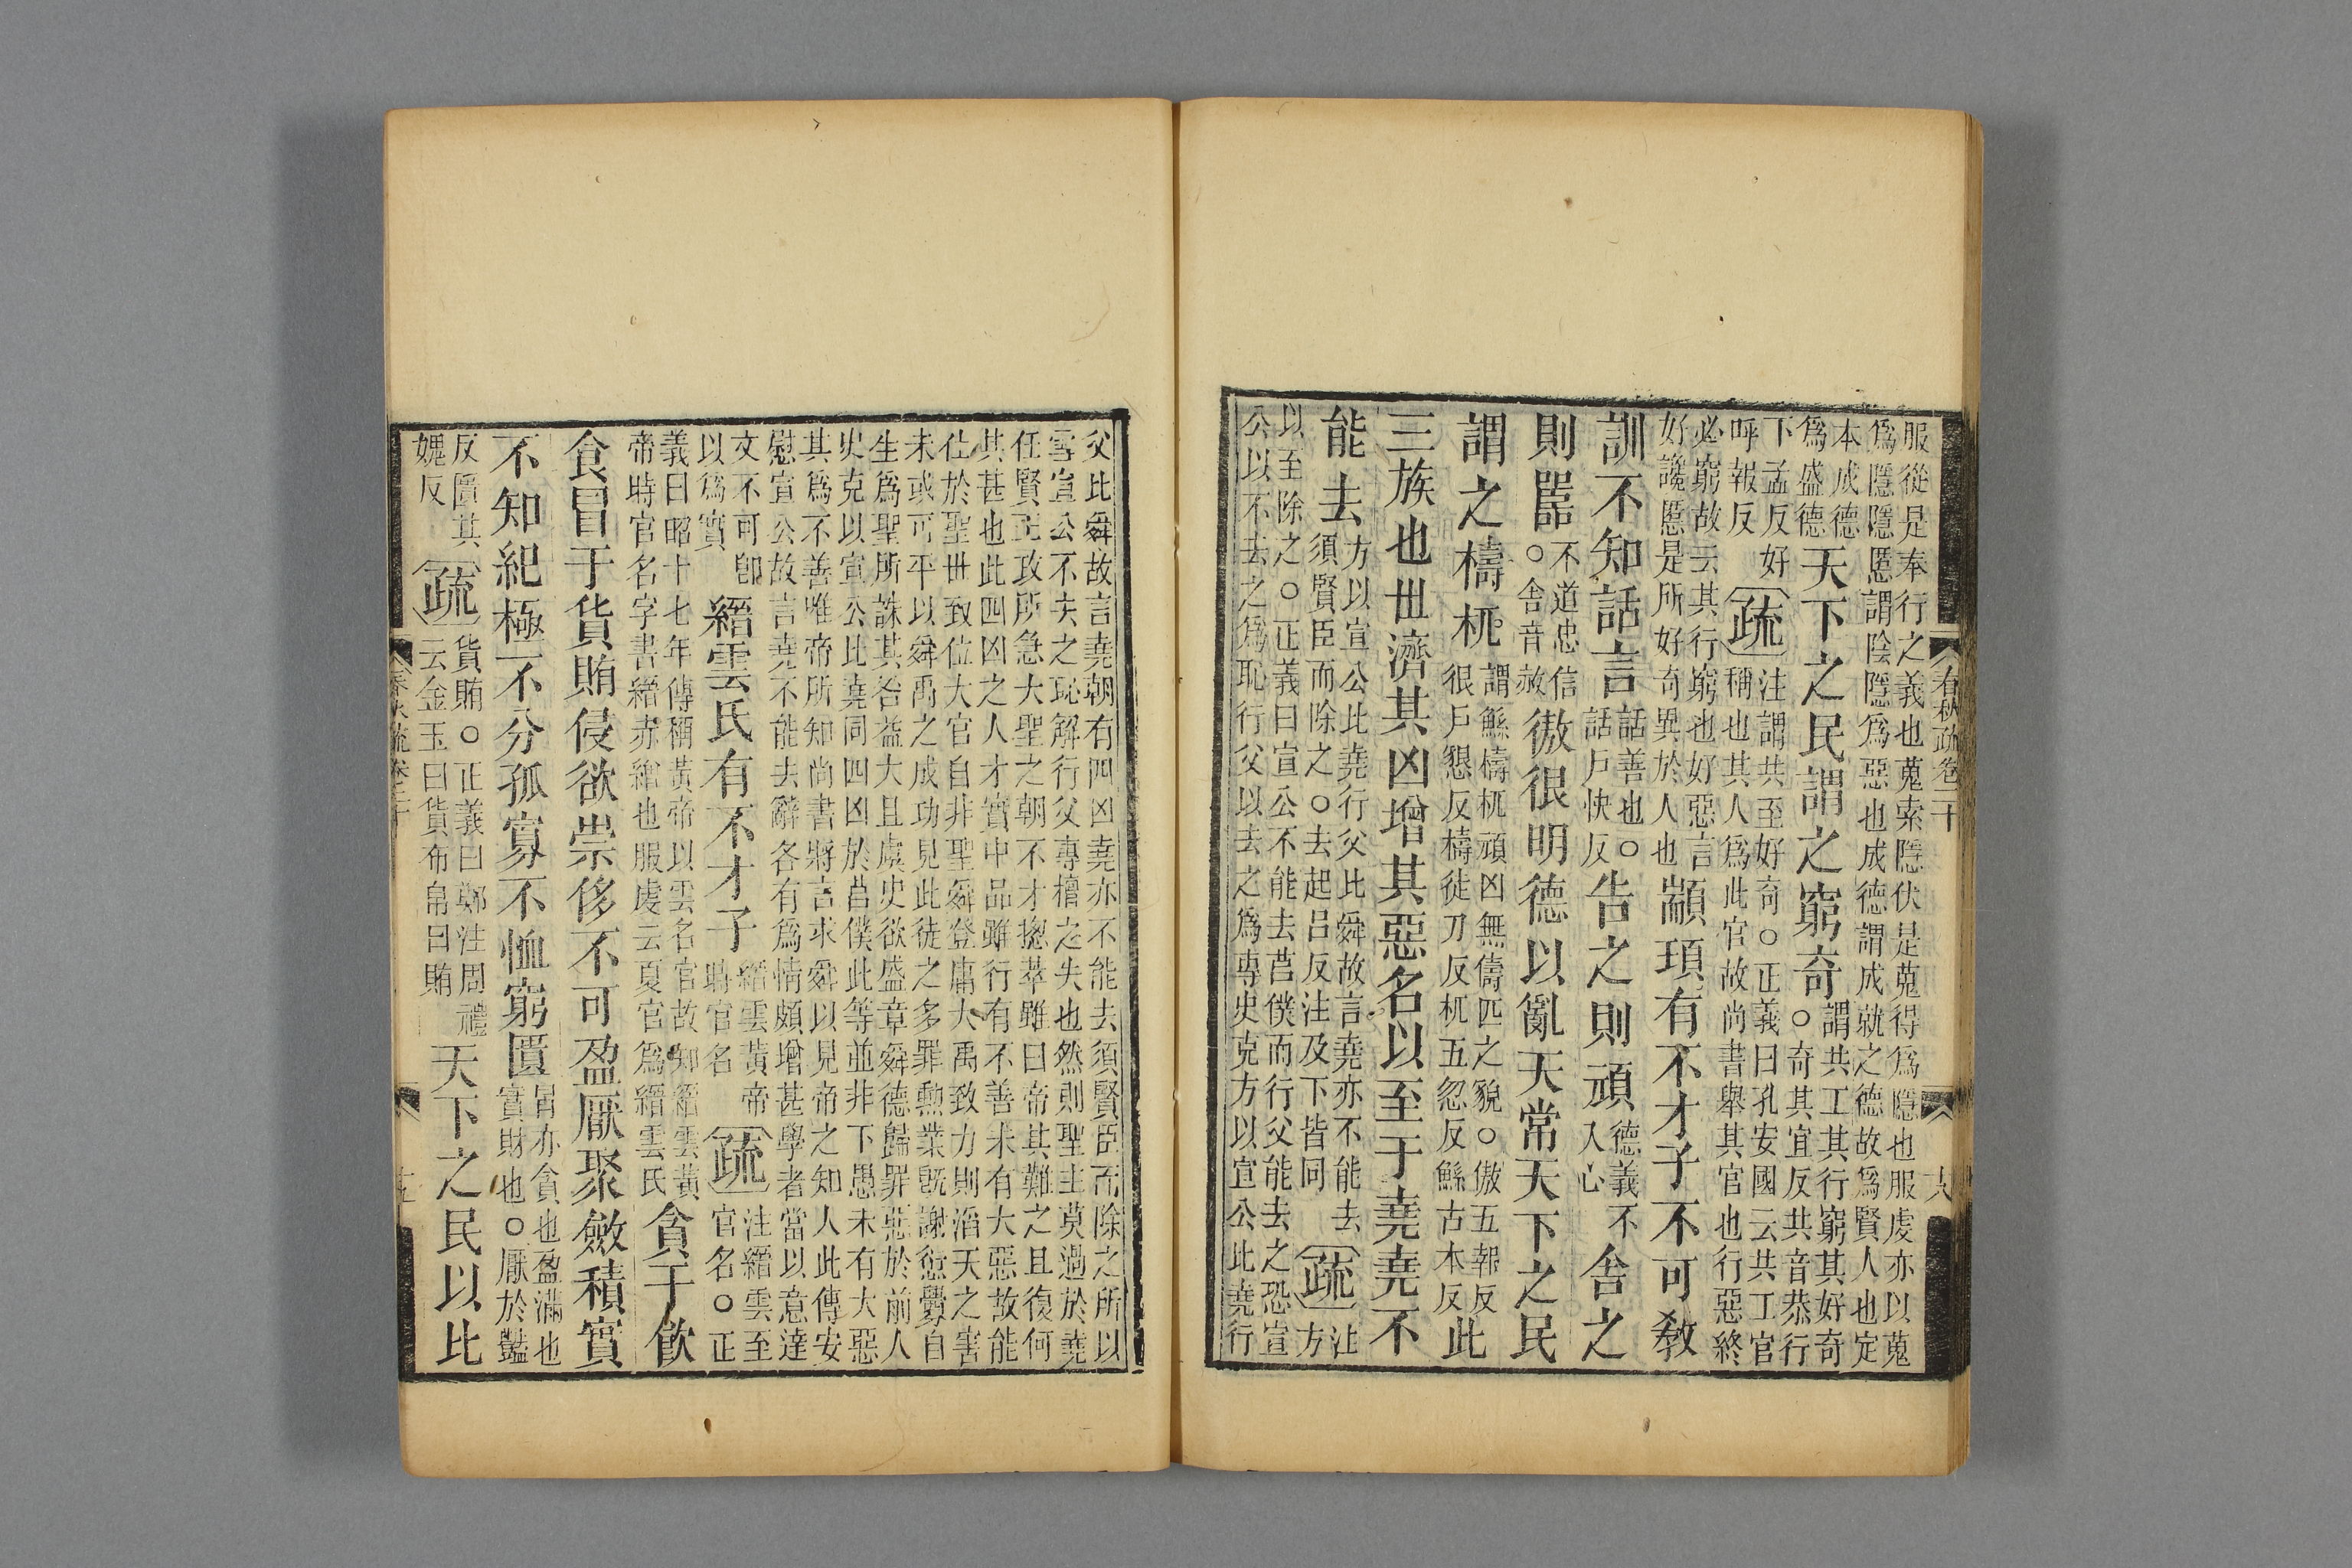 春秋疏卷二十
服從是奉行之義也蒐索隱伏是蒐得爲隱也服虔亦以蒐
爲隱隱慝謂陰隱爲惡也成德謂成就之德故爲賢人也定
本成德
爲盛德
天下之民謂之窮奇
謂共工其行窮其好奇
○奇其宜反共音恭行
下孟反好
呼報反
疏
注謂共至好奇○正義曰孔安國云共工官
稱也其人爲此官故尚書舉其官也行惡終
必窮故云其行窮也好惡言
好讒慝是所好奇異於人也
顓頊有不才子不可敎
訓不知話言
話善也○
話戶快反
告之則頑
德義不
入心
舍之
則嚚
不道忠信
○舍音赦
傲很明德以亂天常天下之民
謂之檮杌
謂鯀檮杌頑凶無儔匹之貌○傲五報反
很戶懇反檮徒刀反杌五忽反鯀古本反
此
三族也世濟其凶增其惡名以至于堯堯不
能去
方以宣公比堯行父比舜故言堯亦不能去
須賢臣而除之○去起呂反注及下皆同
疏
注方
以至除之○正義曰宣公不能去莒僕而行父能去之恐宣
公以不去之爲恥行父以去之爲專史克方以宣公比堯行
父比舜故言堯朝有四凶堯亦不能去須賢臣而除之所以
雪宣公不去之恥解行父專擅之失也然則聖主莫過於堯
任賢王政所急大聖之朝不才揔萃雖曰帝其難之且復何
其甚也此四凶之人才實中品雖行有不善未有大惡故能
仕於聖世致位大官自非聖舜登庸大禹致力則滔天之害
未或可平以舜禹之成功見此徒之多罪勲業既謝愆釁自
生爲聖所誅其咎益大且虞史欲盛章舜德歸罪惡於前人
史克以宣公比堯同四凶於莒僕此等並非下愚未有大惡
其爲不善唯帝所知尚書將言求舜以見帝之知人此傳安
慰宣公故言堯不能去辭各有爲情頗增甚學者當以意達
文不可卽
以爲實
縉雲氏有不才子
縉雲黃帝
時官名
疏
注縉雲至
官名○正
義曰昭十七年傳稱黃帝以雲名官故知縉雲黃
帝時官名字書縉赤繒也服虔云夏官爲縉雲氏
貪于飮
食冒于貨賄侵欲崇侈不可盈厭聚斂積實
不知紀極不分孤寡不恤窮匱
冒亦貪也盈滿也
實財也○厭於豔
反匱其
媿反
疏
貨賄○正義曰鄭注周禮
云金玉曰貨布帛曰賄
天下之民以比
春秋疏卷二十